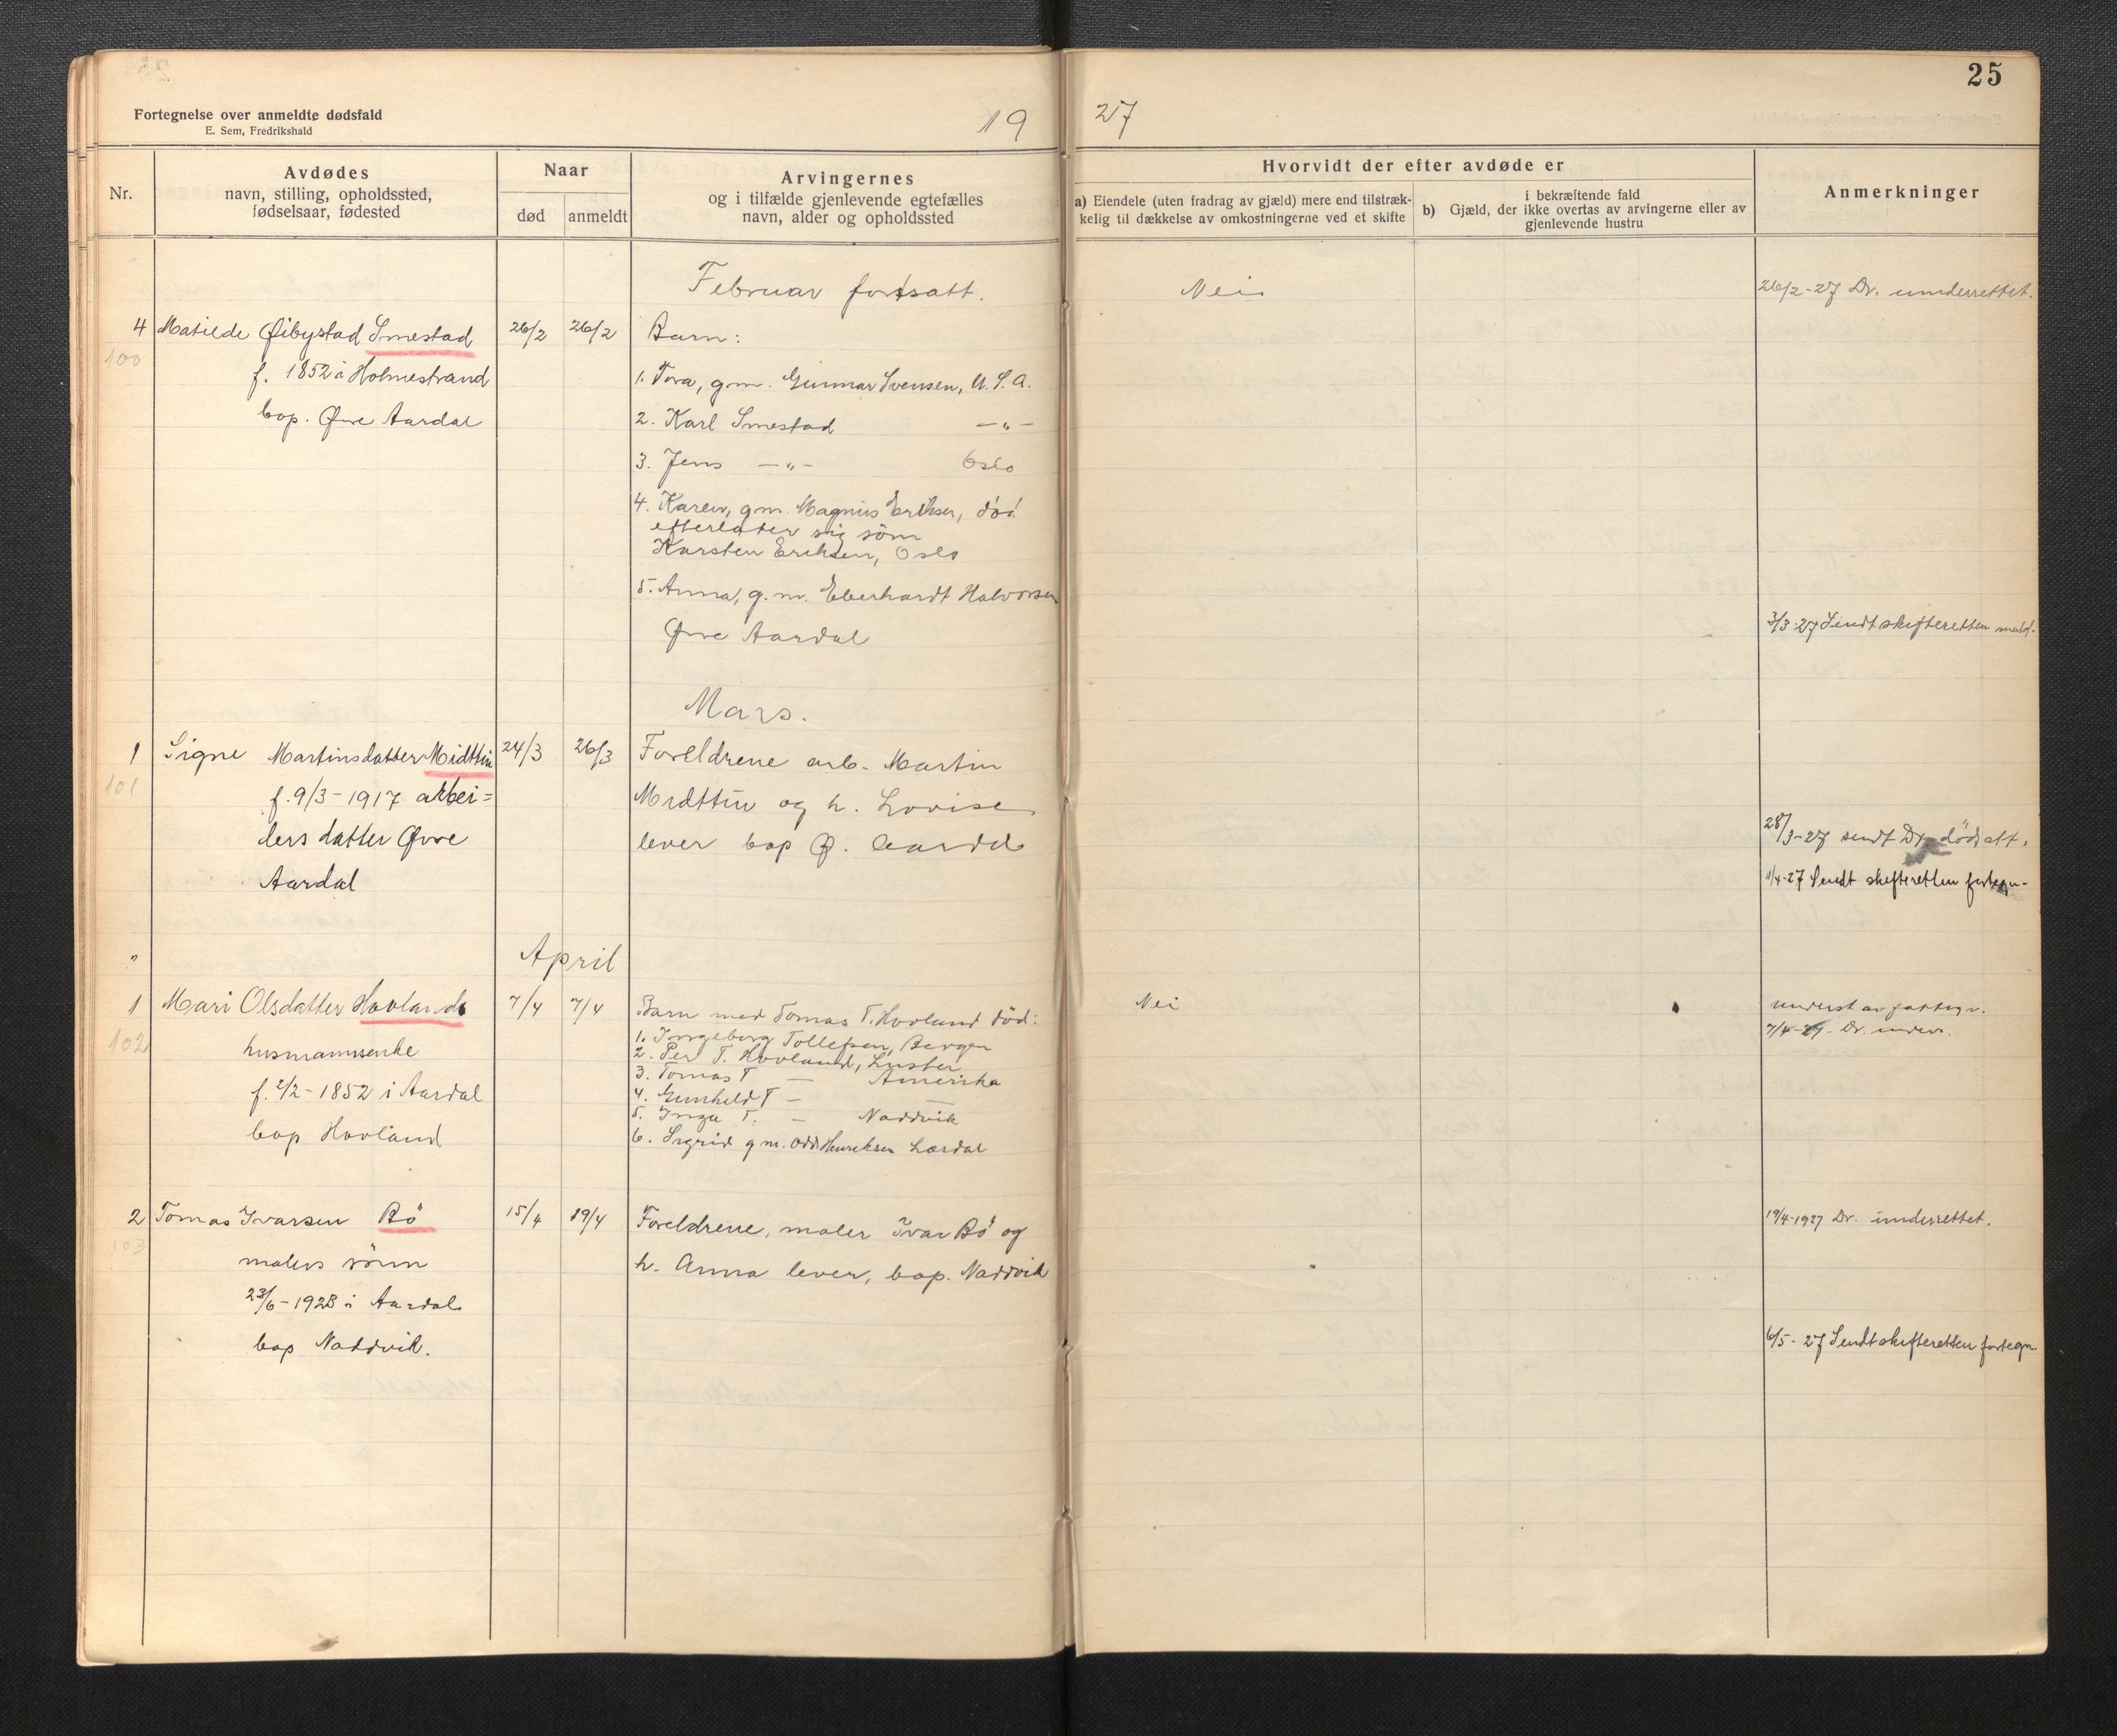 25
Fortegnelse over anmeldte dødsfald
E. Sem, Fredrikshald
19
27
Nr.
Avdødes
navn, stilling, opholdssted,
fødselsaar, fødested
Naar
død
anmeldt
Arvingernes
og i tilfælde gjenlevende egtefælles
navn, alder og opholdssted
Hvorvidt der efter avdøde er
a) Eiendele (uten fradrag av gjæld) mere end tilstræk-
kelig til dækkelse av omkostningerne ved et skifte
i bekræftende fald
b) Gjæld, der ikke overtas av arvingerne eller av
gjenlevende hustru
Anmerkninger
Februar fortsatt.
Nei
26/2-27 Dr. underrettet.
4 Matilde Øibystad Smestad 26/2 26/2 Barn:
100
f. 1852 i Holmestrand
bop. Øvre Aardal
1. Tora, g.m. Gunnar Svensen, U.S.A.
2. Karl Smestad —"—
3. Jens —"— Oslo
4. Karen, g.m. Magnus Eriksen, död
efterlater sig søm
Karsten Eriksen, Oslo
5. Anna, g.m. Eberhardt Halvorsen
Øvre Aardal
3/3-27 Sendt skifteretten meld.
Mars.
1 Signe Martinsdatter Midttun 24/3 26/3 Foreldrene arb. Martin
101
f. 9/3-1917 arbei=
ders datter Øvre
Aardal
Midttun og h. Lovise
lever bop Ø. Aardal
28/3-27 sendt Dr. dödsatt.
11/4-27 Sendt skifteretten fortegn-
" April
1 Mari Olsdatter Hovland 7/4 7/4 Barn med Tomas T. Hovland död:
102
husmannsenke
f. 2/2-1852 i Aardal
bop Hovland
1. Ingeborg Tollefsen, Bergen
2. Per T. Hovland, Luster
3. Tomas T — Amerika
4. Gunhild T — —
5. Inga T. — Naddvik
6. Sigrid g.m. Odd Henriksen Lærdal
Nei
7/4-27. Dr. underr.
2 Tomas Ivarsen Bö 15/4 19/4 Foreldrene, maler Ivar Bö og
103
malers sönn
23/6-1923 i Aardal
bop Naddvik.
h. Anna lever, bop. Naddvik
19/4-1927 Dr. underrettet.
6/5-27 Sendt skifteretten fortegn.